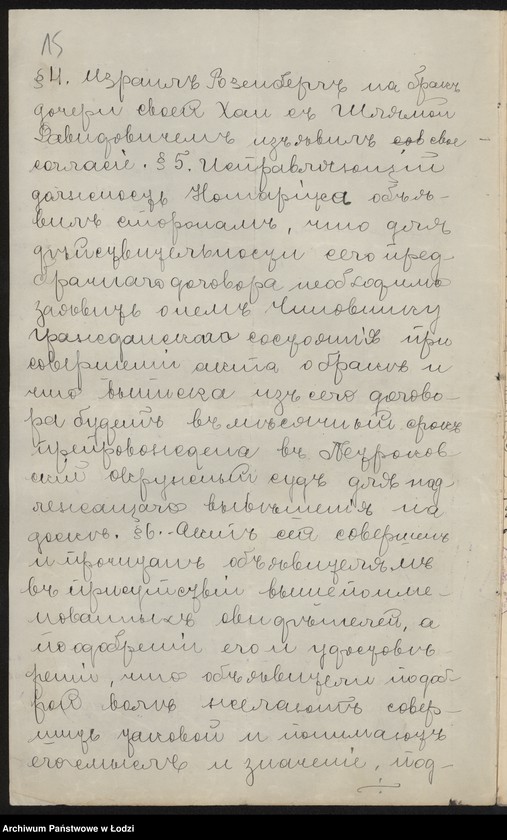 15
§ 4. Израиль Розенбергъ на бракъ
дочери своей Хаи съ Шлямой
Давидовичемъ изъявилъ сов свое
согласіе. § 5. Исправляющій
должность Нотаріуса объя-
вилъ сторонамъ, что для
дѣйствительности сего пред-
брачнаго договора необходимо
заявить о немъ Чиновнику
гражданскаго состоянія при
совершеніи акта о бракѣ и
что выписка изъ сего догово-
ра будетъ въ мѣсячный срокъ
препровождена въ Петроков-
скій окружный судъ для над-
лежащаго вывѣшенія на
доскѣ. § 6. Актъ сей совершенъ
и прочитанъ объявителямъ
въ присутствіи вышепоиме-
нованныхъ свидѣтелей, а
по одобреніи его и удостовѣ-
реніи, что объявители по доб-
рой волѣ желаютъ совер-
шить таковой и понимаютъ
его смыслъ и значеніе, под-
Archiwum Państwowe w Łodzi